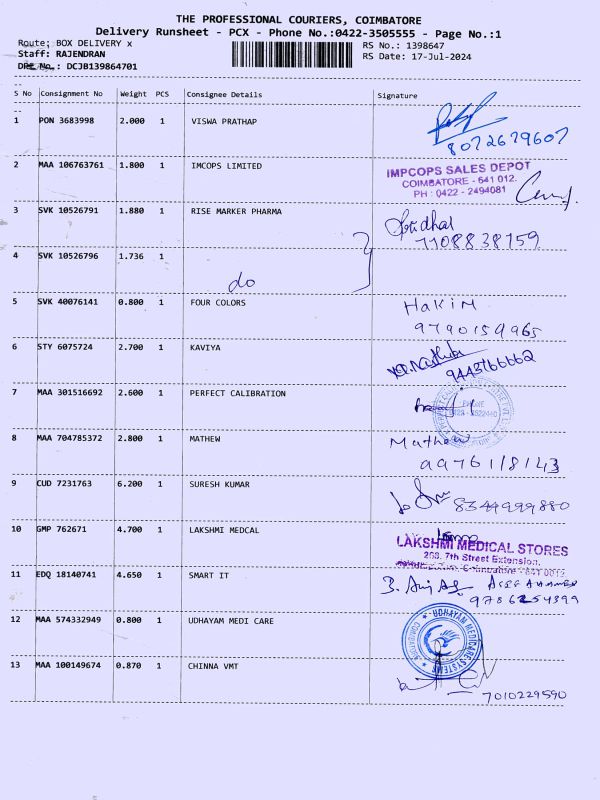 THE PROFESSIONAL COURIERS, COIMBATORE
Delivery Runsheet - PCX - Phone No.:0422-3505555 - Page No.:1
Route: BOX DELIVERY x
RS No.: 1398647
Staff: RAJENDRAN
RS Date: 17-Jul-2024
DRS No.: DCJB139864701
S No Consignment No Weight PCS Consignee Details Signature
1 PON 3683998 2.000 1 VISWA PRATHAP
8072679607
2 MAA 106763761 1.800 1 IMCOPS LIMITED
IMPCOPS SALES DEPOT
COIMBATORE - 641 012.
PH : 0422 - 2494081
3 SVK 10526791 1.880 1 RISE MARKER PHARMA
Sridhar
7708838759
4 SVK 10526796 1.736 1
do
5 SVK 40076141 0.800 1 FOUR COLORS
HAKIM
9790159965
6 STY 6075724 2.700 1 KAVIYA
9443766662
7 MAA 301516692 2.600 1 PERFECT CALIBRATION
PHONE
8 MAA 704785372 2.800 1 MATHEW
Mathew
9 CUD 7231763 6.200 1 SURESH KUMAR
8344999880
10 GMP 762671 4.700 1 LAKSHMI MEDCAL
LAKSHMI MEDICAL STORES
268, 7th Street Extension,
11 EDQ 18140741 4.650 1 SMART IT
9786254399
12 MAA 574332949 0.800 1 UDHAYAM MEDI CARE
UDHAYAM MEDICARE SYSTEMS
13 MAA 100149674 0.870 1 CHINNA VMT
7010229590